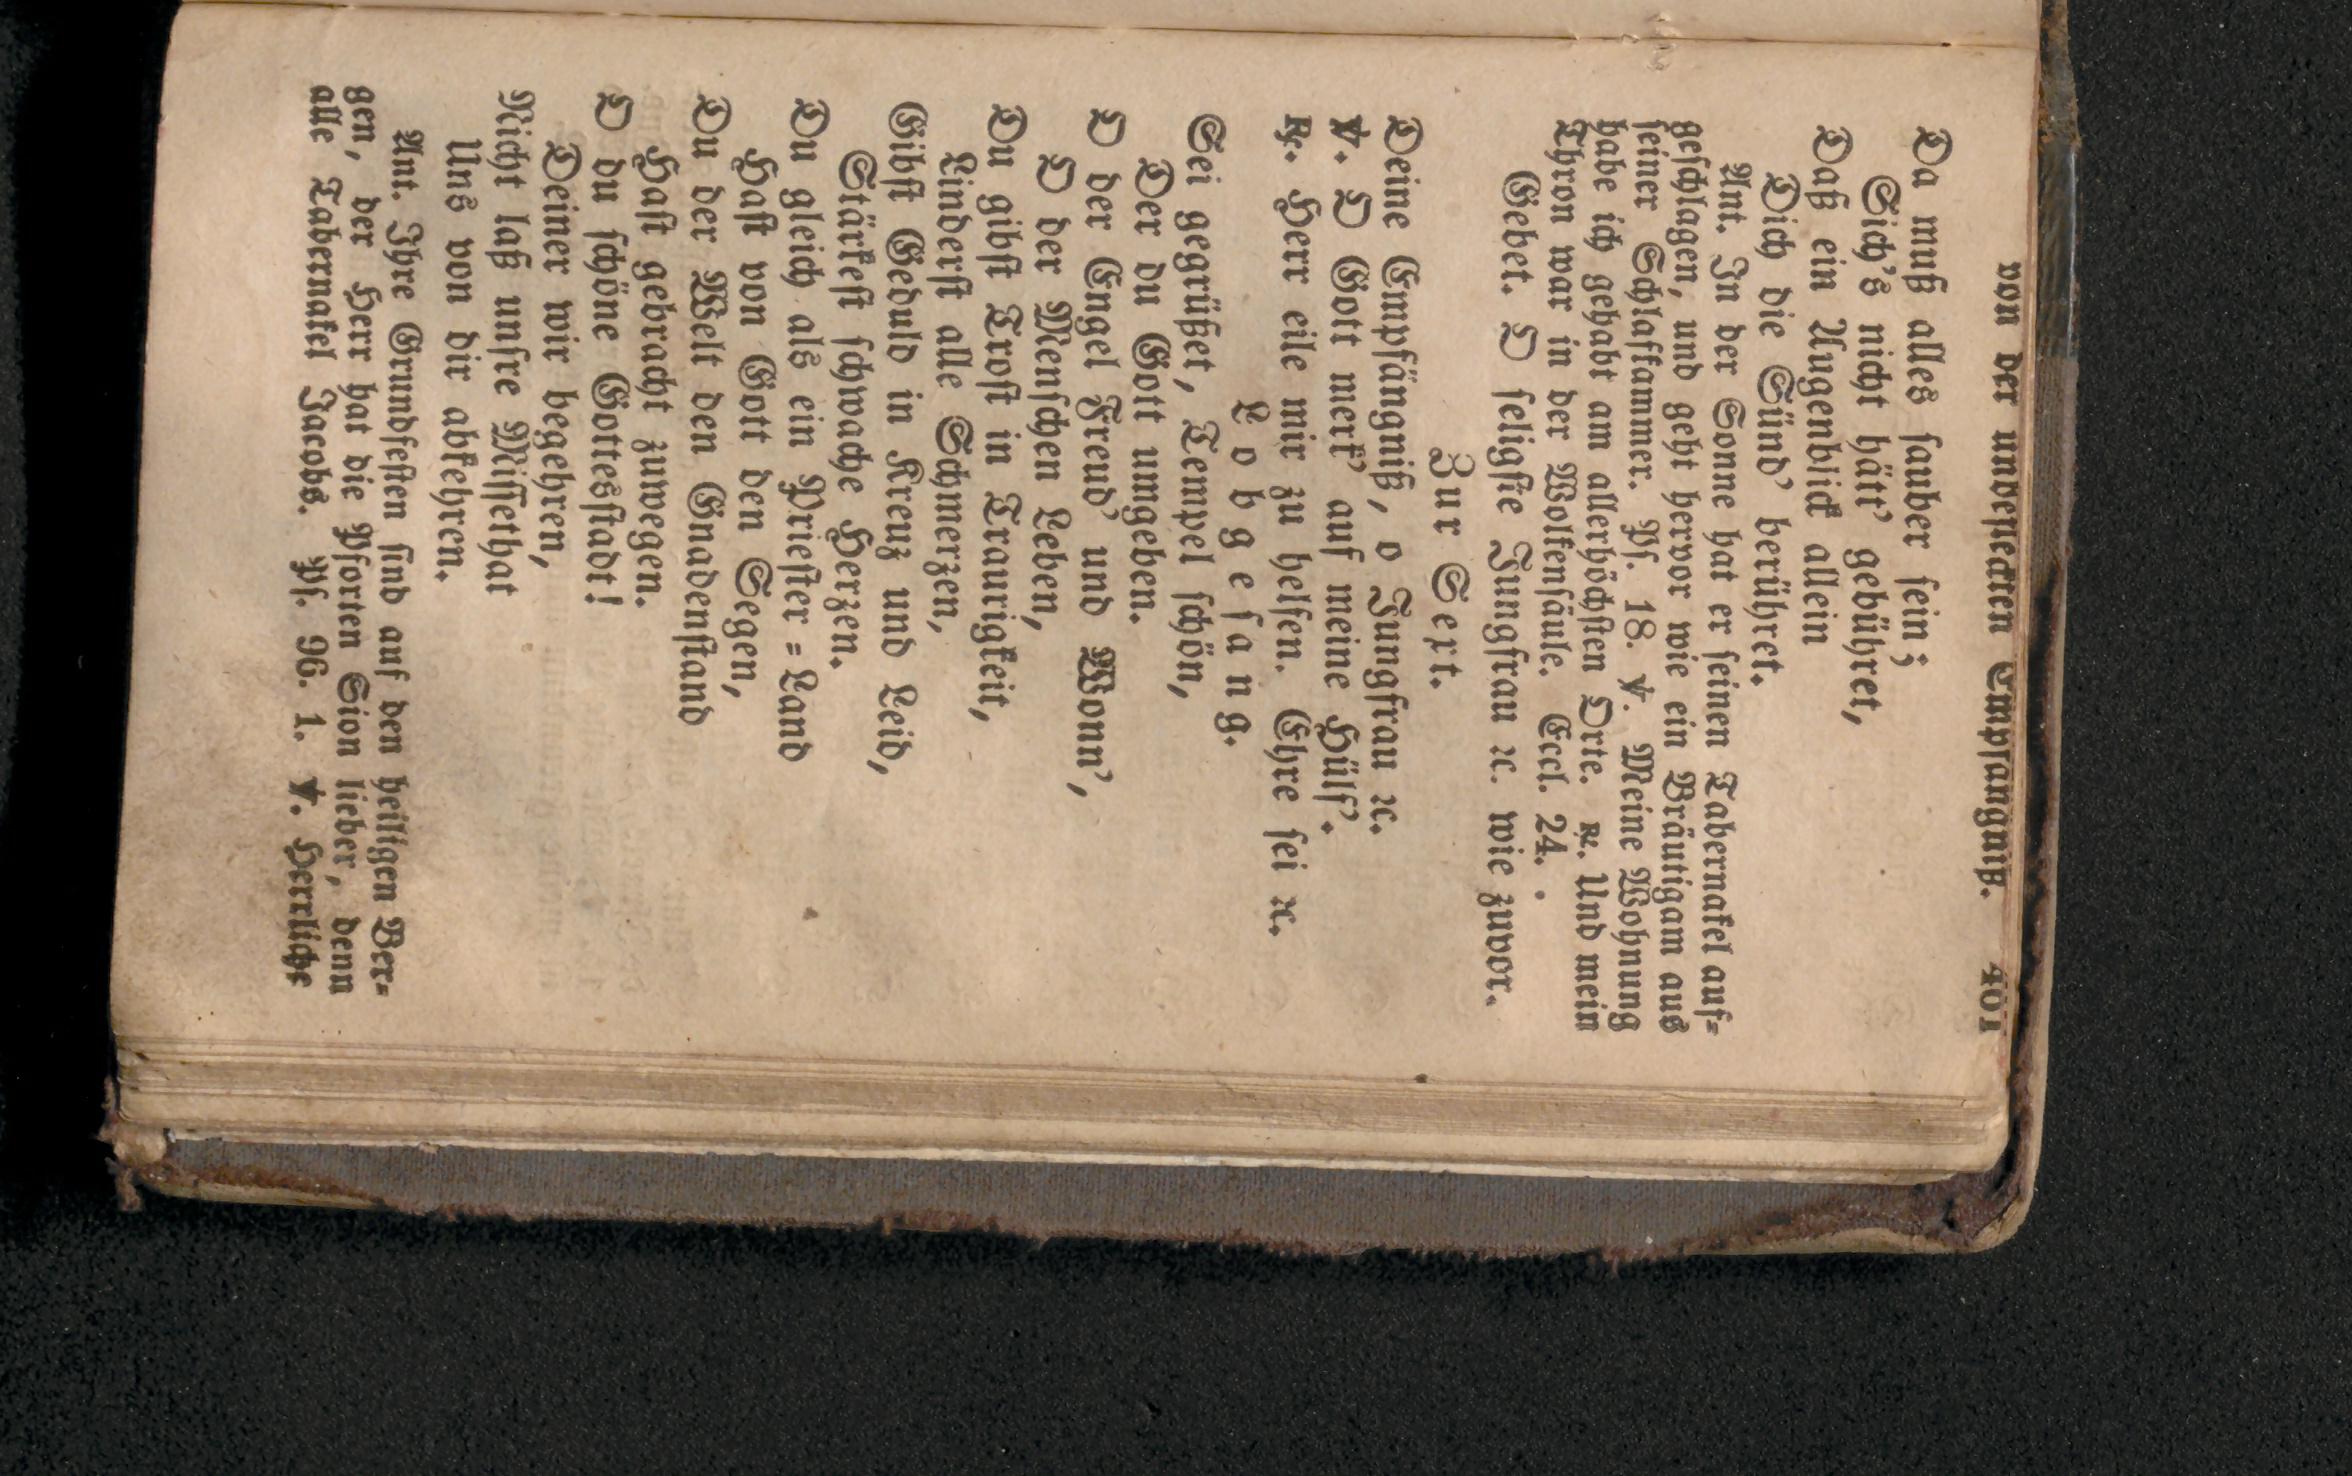 von der unbefleckten Empfängniß. 401
Da muß alles sauber sein;
Sich's nicht hätt' gebühret,
Daß ein Augenblick allein
Dich die Sünd' berühret.
Ant. In der Sonne hat er seinen Tabernakel auf-
geschlagen, und geht hervor wie ein Bräutigam aus
seiner Schlafkammer. Ps. 18. ℣. Meine Wohnung
habe ich gehabt am allerhöchsten Orte. ℟. Und mein
Thron war in der Wolkensäule. Eccl. 24.
Gebet. O seligste Jungfrau ꝛc. wie zuvor.
Zur Sext.
Deine Empfängniß, o Jungfrau ꝛc.
℣. O Gott merk' auf meine Hülf'.
℟. Herr eile mir zu helfen. Ehre sei ꝛc.
Lobgesang.
Sei gegrüßet, Tempel schön,
Der du Gott umgeben.
O der Engel Freud' und Wonn',
O der Menschen Leben,
Du gibst Trost in Traurigkeit,
Linderst alle Schmerzen,
Gibst Geduld in Kreuz und Leid,
Stärkest schwache Herzen.
Du gleich als ein Priester=Land
Hast von Gott den Segen,
Du der Welt den Gnadenstand
Hast gebracht zuwegen.
O du schöne Gottesstadt!
Deiner wir begehren,
Nicht laß unsre Missethat
Uns von dir abkehren.
Ant. Ihre Grundfesten sind auf den heiligen Ber-
gen, der Herr hat die Pforten Sion lieber, denn
alle Tabernakel Jacobs. Ps. 96. 1. ℣. Herrliche